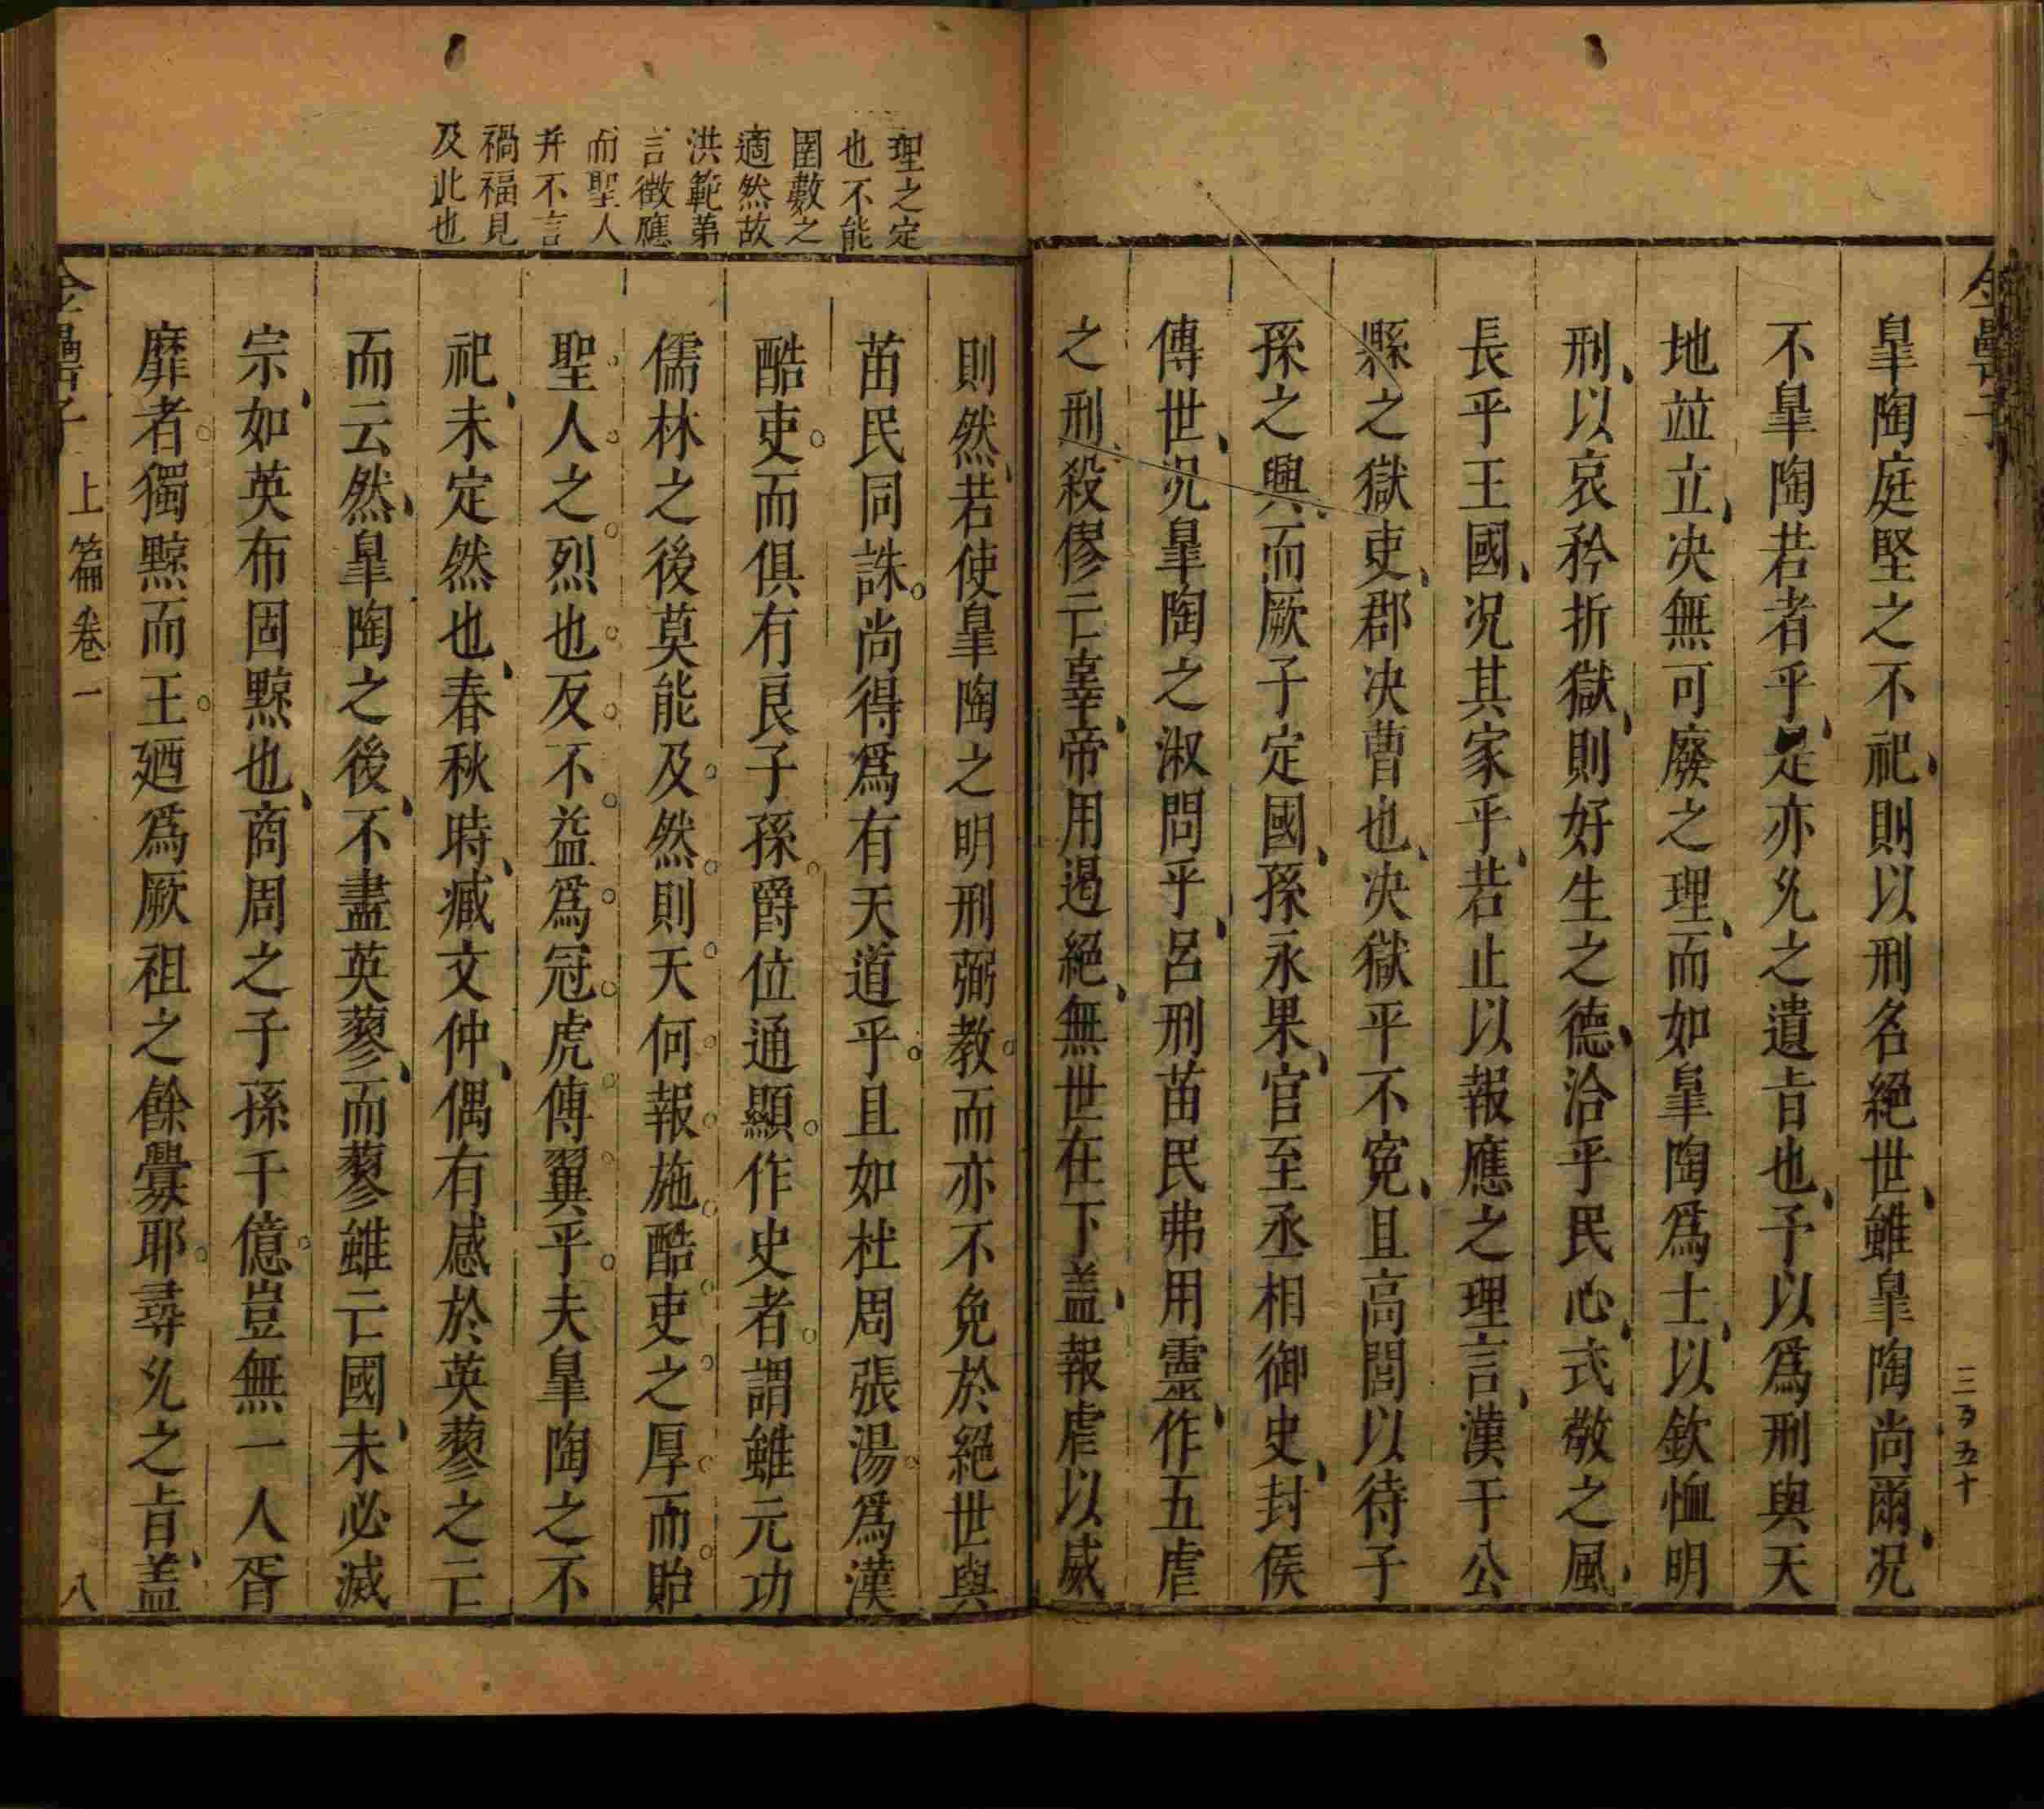 金罍子
皐陶庭堅之不祀則以刑名絕世雖皐陶尚爾况
不皐陶若者乎是亦𠒋之遺㫖也予以爲刑與天
地並立决無可廢之理而如皐陶爲士以欽恤明
刑以哀矜折獄則好生之德洽乎民心式敬之風
長乎王國况其家乎若止以報應之理言漢于公
縣之獄吏郡决曹也决獄平不寃且高閭以待子
孫之興而厥子定國孫永果官至丞相御史封侯
傳世况皐陶之淑問乎呂刑苗民弗用靈作五虐
之刑殺僇亡辜帝用遏絕無世在下盖報虐以威
則然若使皐陶之明刑弼教而亦不免於絕世與
苗民同誅尚得爲有天道乎且如杜周張湯爲漢
酷吏而俱有良子孫爵位通顯作史者謂雖元功
儒林之後莫能及然則天何報施酷吏之厚而貽
聖人之烈也反不益爲冠虎傅翼乎夫皐陶之不
祀未定然也春秋時臧文仲偶有感於英蓼之亡
而云然皐陶之後不盡英蓼而蓼雖亡國未必滅
宗如英布固黥也商周之子孫千億豈無一人胥
靡者獨黥而王廼爲厥祖之餘釁耶尋𠒋之㫖盖
理之定
也不能
囿數之
適然故
洪範第
言徵應
而聖人
并不言
禍福見
及此也
金罍子
上篇卷一
八